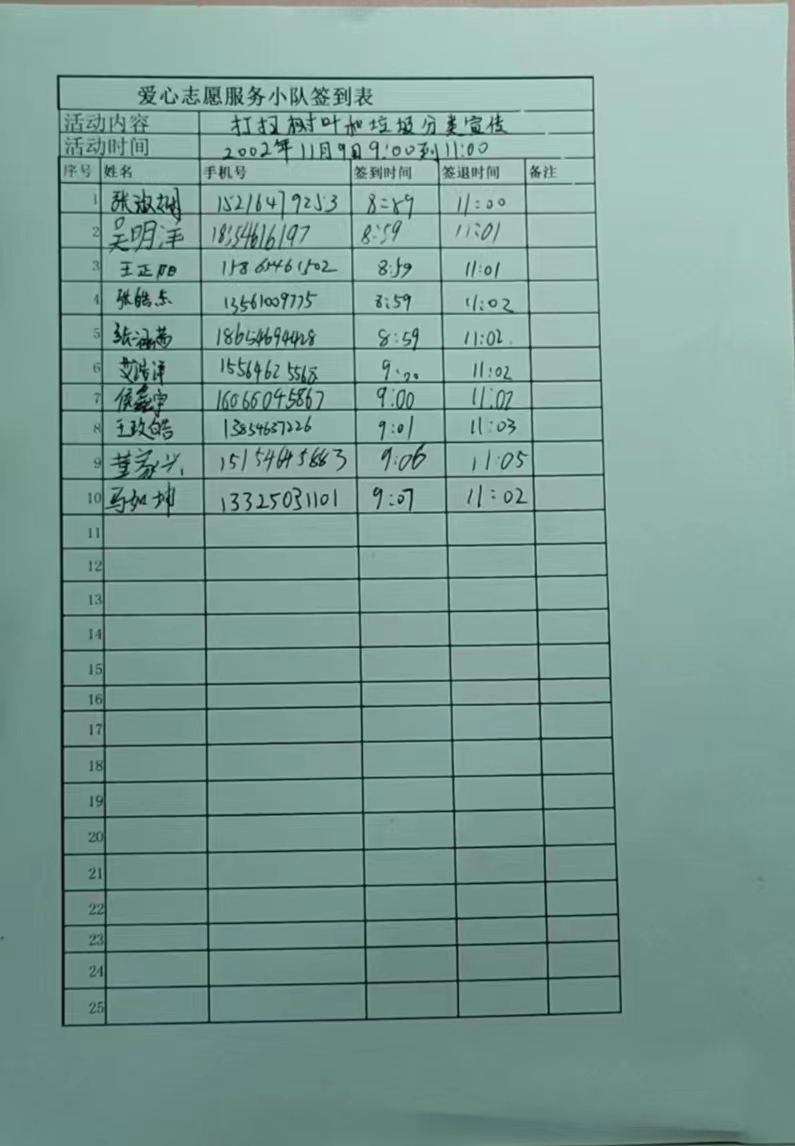 爱心志愿服务小队签到表
活动内容 打扫树叶和垃圾分类宣传
活动时间 2002年11月9日9:00到11:00
序号 姓名 手机号 签到时间 签退时间 备注
1 15216479253 8:59 11:00
2 吴明洋 18354616197 8:59 11:01
3 王正阳 8:59 11:01
4 张皓东 13561009775 8:59 11:02
5 张涵茜 18654694428 8:59 11:02
6 艾浩洋 15564625568 9:00 11:02
7 侯鑫宇 16066045867 9:00 11:02
8 王政皓 13854637226 9:01 11:03
9 董家兴 15154645883 9:06 11:05
10 马如坤 13325031101 9:07 11:02
11
12
13
14
15
16
17
18
19
20
21
22
23
24
25